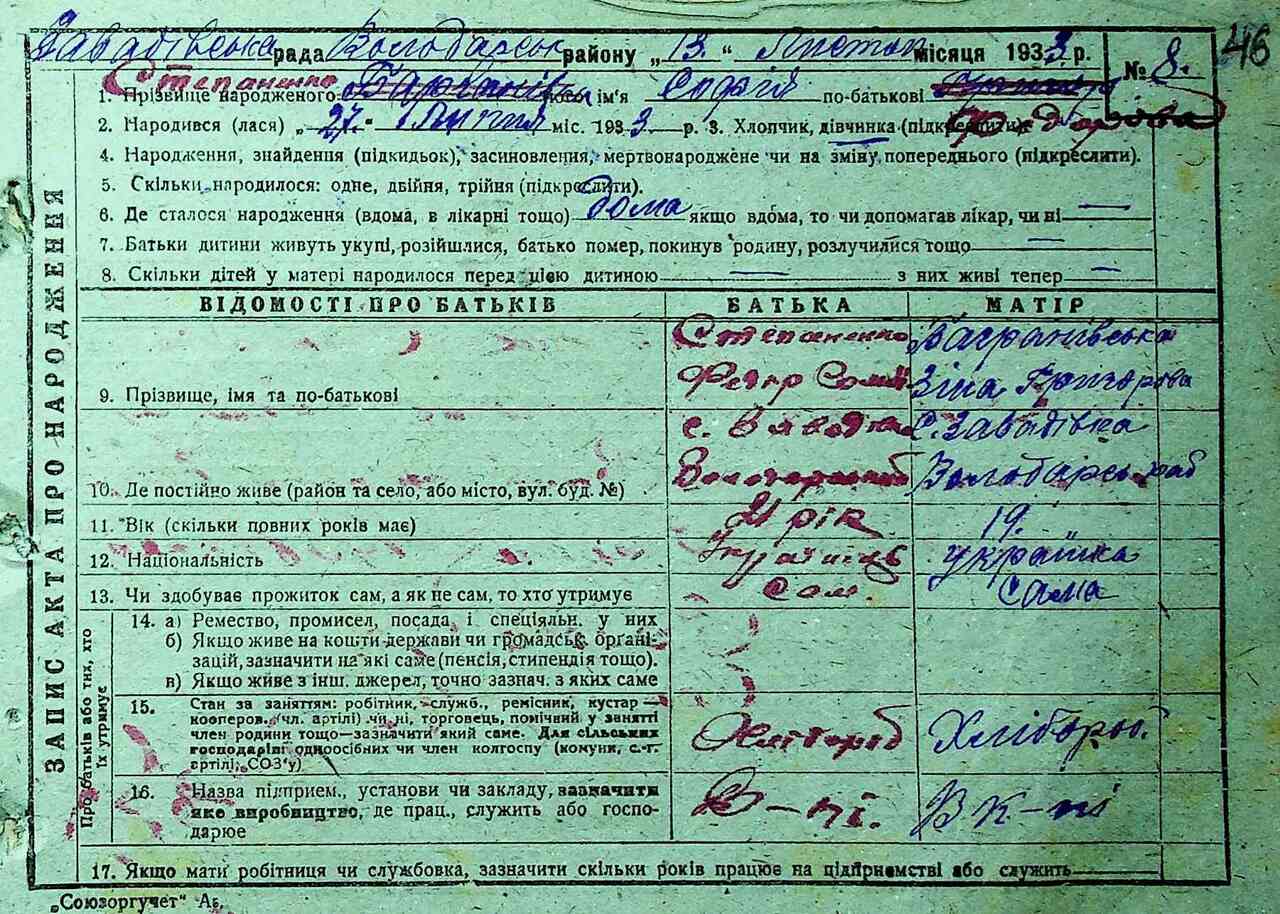 Завадівська рада Володарськ району „13“ Листоп місяця 1933 р. № 8. 46
1. Прізвище народженого Степаненко ім'я Софія по-батькові
2. Народився (лася) „27 Липня міс. 1933 р. 3. Хлопчик, дівчинка (підкреслити) Федорова
4. Народження, знайдення (підкидьок), засиновлення, мертвонароджене чи на зміну попереднього (підкреслити).
5. Скільки народилося: одне, двійня, трійня (підкреслити).
6. Де сталося народження (вдома, в лікарні тощо) дома якщо вдома, то чи допомагав лікар, чи ні —
7. Батьки дитини живуть укупі, розійшлися, батько помер, покинув родину, розлучилися тощо —
8. Скільки дітей у матері народилося перед цією дитиною — з них живі тепер —
ЗАПИС АКТА ПРО НАРОДЖЕННЯ
ВІДОМОСТІ ПРО БАТЬКІВ БАТЬКА МАТІР
Степаненко Багранівська
9. Прізвище, імя та по-батькові Зіна Григорова
с. Завадівка
10. Де постійно живе (район та село, або місто, вул. буд. №) Володарськ раб
11. Вік (скільки повних років має) 21 рік 19.
12. Національність Українець українка
13. Чи здобуває прожиток сам, а як не сам, то хто утримує Сам. Сама
Про батьків або тих, хто їх утримує
14. а) Ремество, промисел, посада і спеціяльн. у них
б) Якщо живе на кошти держави чи громадськ. органі-
зацій, зазначити на які саме (пенсія, стипендія тощо).
в) Якщо живе з інш. джерел, точно зазнач. з яких саме
15. Стан за заняттям: робітник, служб., ремісник, кустар —
кооперов. (чл. артілі) чи ні, торговець, помічний у занятті
член родини тощо—зазначити який саме. Для сільських
господарів: одноосібних чи член колгоспу (комуни, с.-г. Хлібороб Хлібороб
артілі, СОЗ'у)
16. Назва підприєм., установи чи закладу, зазначити
яке виробництво, де прац., служить або госпо- В-пі. В к-пі
дарює
17. Якщо мати робітниця чи службовка, зазначити скільки років працює на підприємстві або служить
„Союзоргучет“